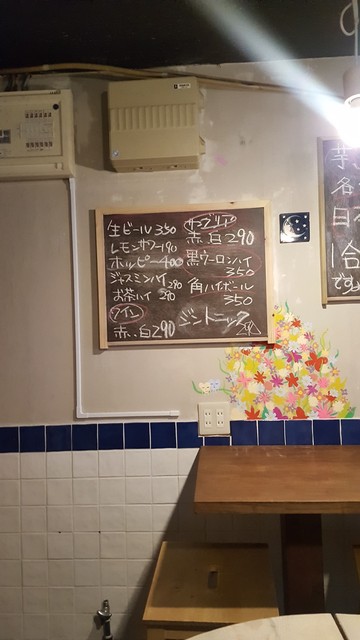 生ビール 350
レモンサワー 190
ホッピー 400
ジャスミンハイ 290
お茶ハイ 290
ワイン
赤・白 290
サングリア
赤 白 290
黒ウーロンハイ
350
角ハイボール
350
ジントニック
芋
名
日
1合
です